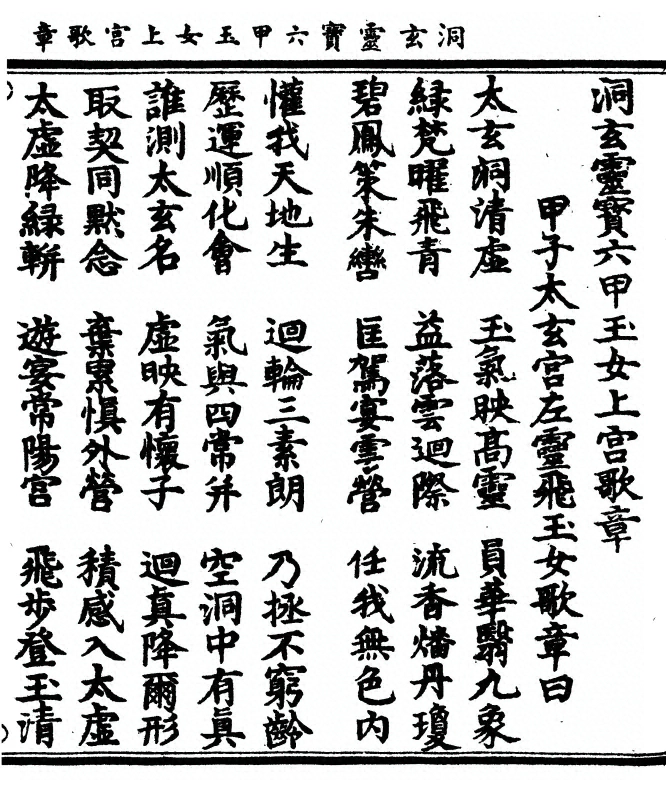 洞玄靈寶六甲玉女上宮歌章
洞玄靈寶六甲玉女上宮歌章
甲子太玄宮左靈飛玉女歌章曰
太玄洞清虛 玉氣映高靈 員華翳九象
緑梵曜飛青 益落雲迴際 流香燔丹瓊
碧鳳策朱轡 匡駕宴雲營 任我無色内
懽我天地生 迴輪三素朗 乃拯不窮齡
歷運順化會 氣與四常并 空洞中有眞
誰測太玄名 虛映有懷子 迴眞降爾形
㪅契同默念 棄累惧外營 積感入太虛
太虛降緑軿 遊宴常陽宮 飛步登玉清